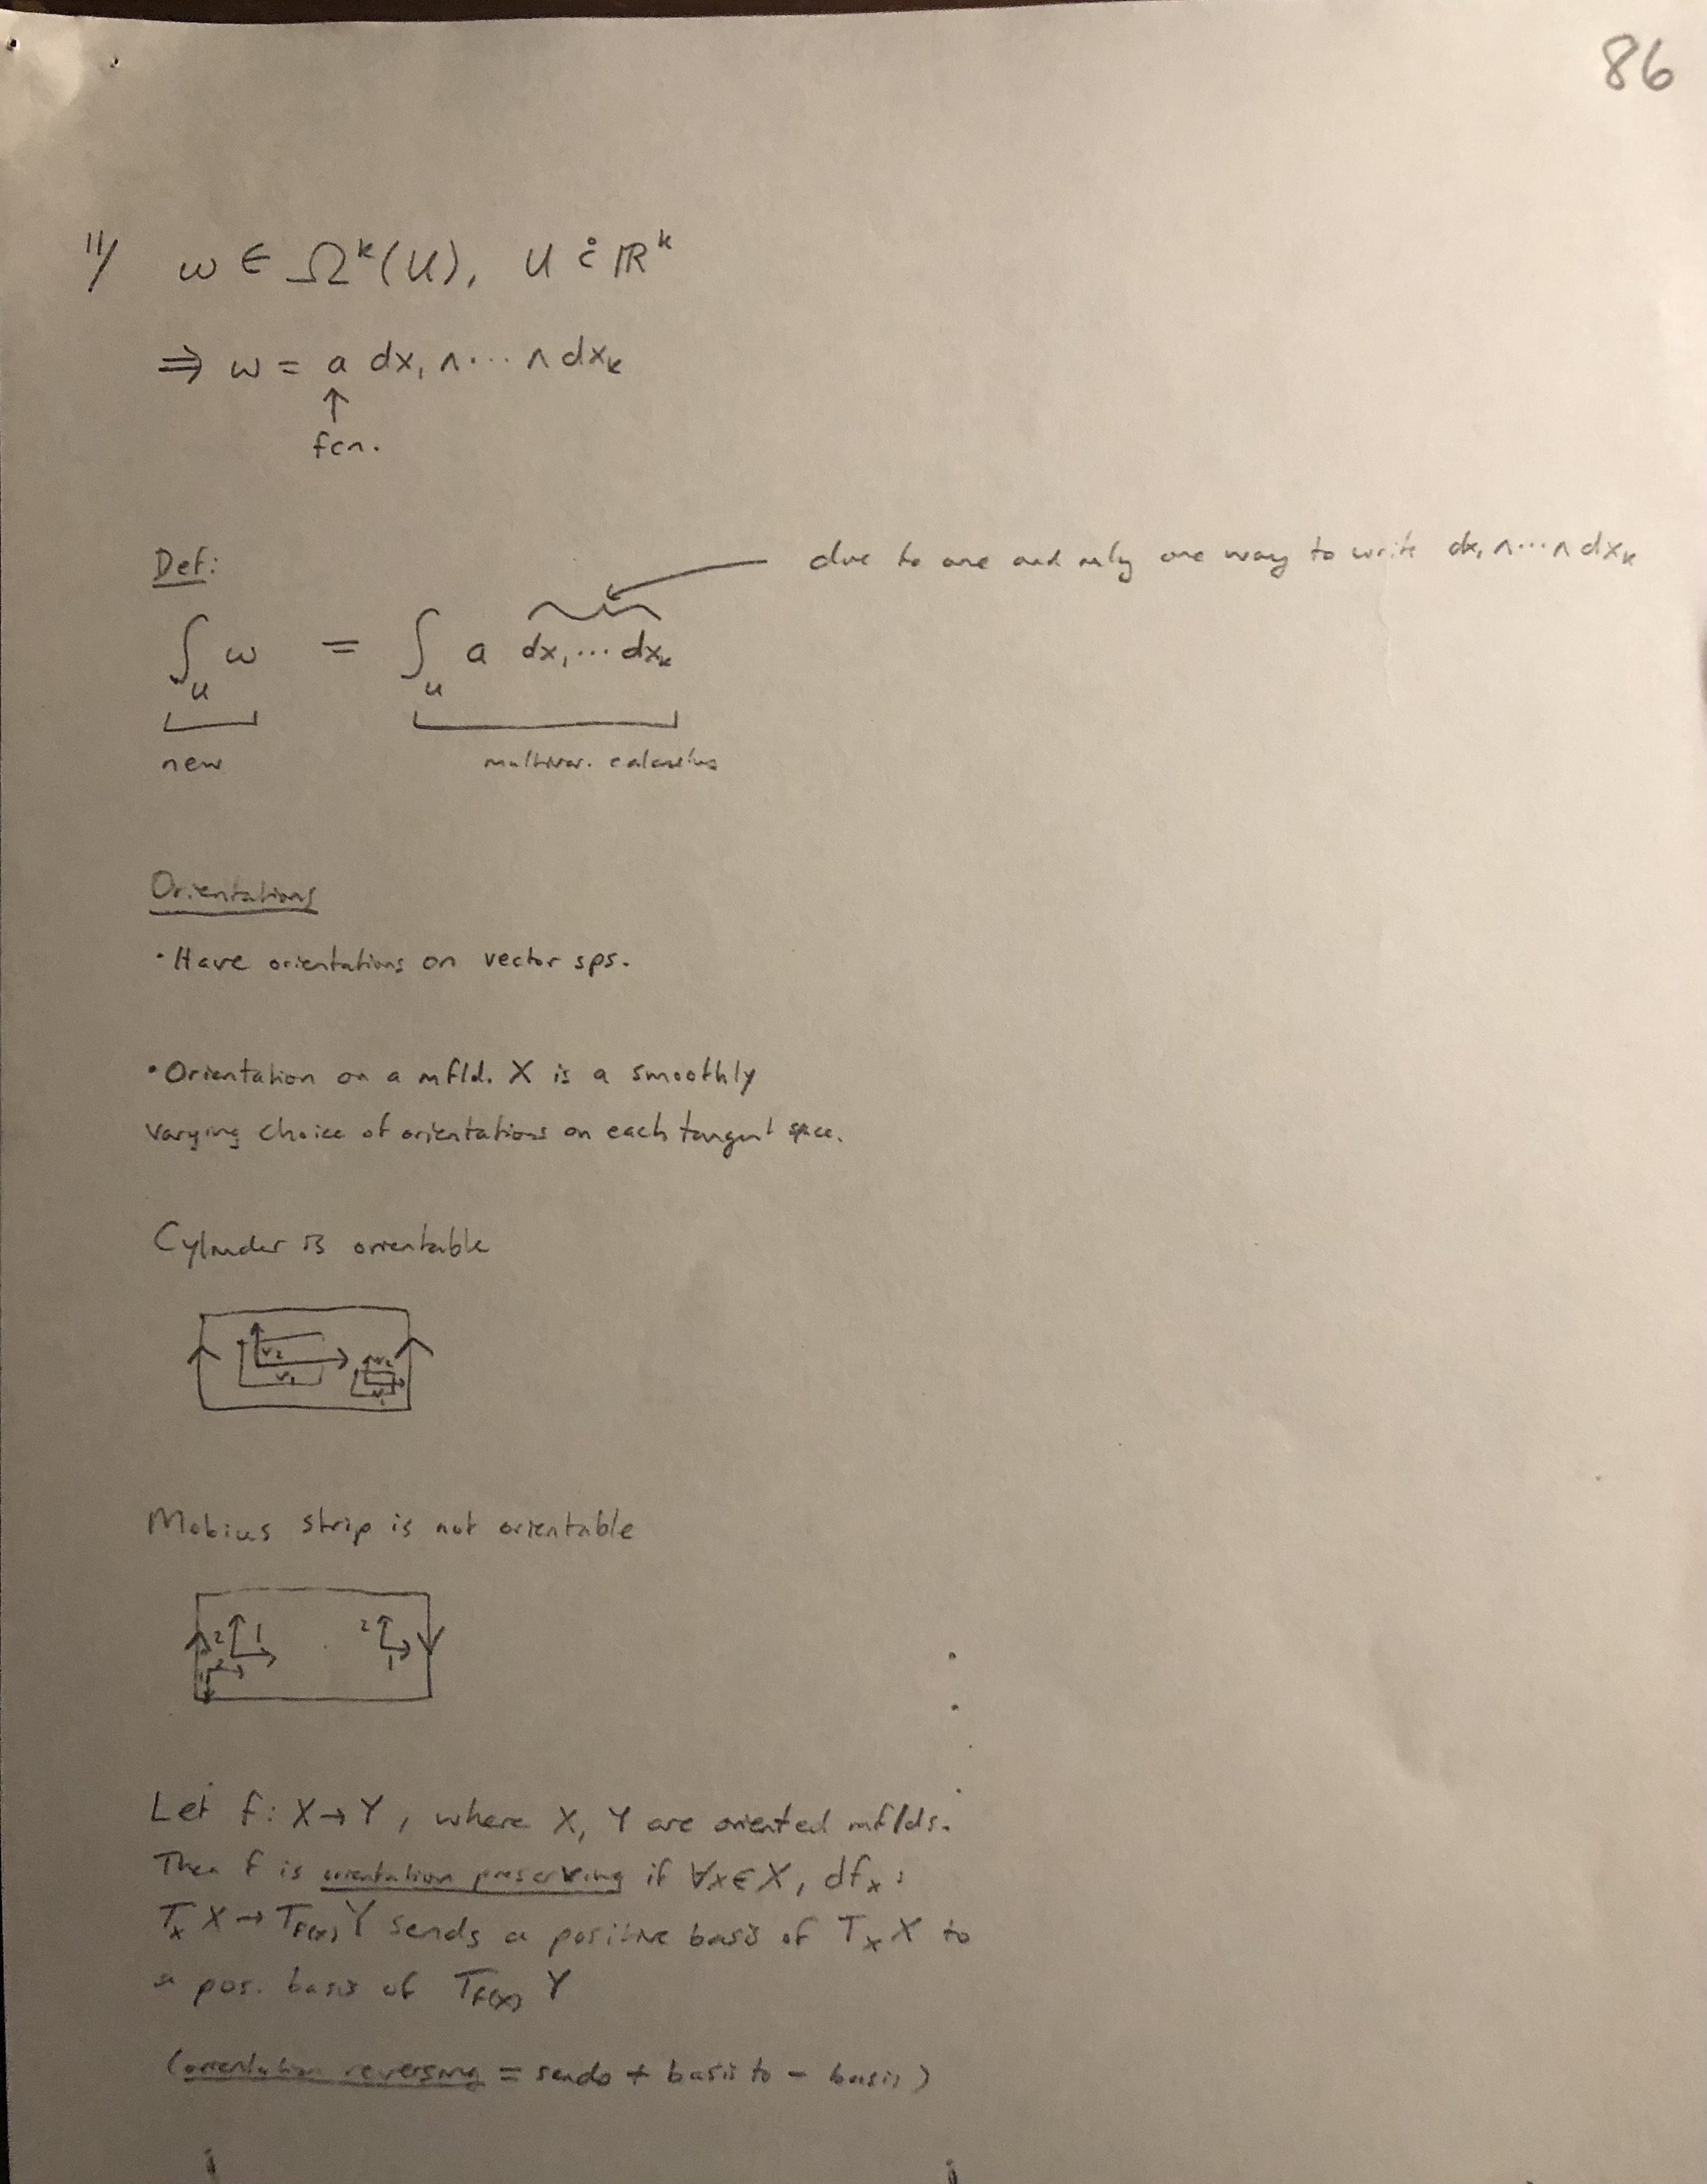 86
11/ ω ∈ Ω^k(U), U ⊂° ℝ^k
⇒ ω = a dx₁ ∧ ⋯ ∧ dx_k
↑
fcn.
Def:
due to one and only one way to write dx₁ ∧ ⋯ ∧ dx_k
∫_U ω = ∫_U a dx₁ ⋯ dx_k
new multivar. calculus
Orientations
• Have orientations on vector sps.
• Orientation on a mfld. X is a smoothly
varying choice of orientations on each tangent space.
Cylinder is orientable
v₂ v₂
v₁ v₁
Mobius strip is not orientable
2 1 2
2 1
Let f: X → Y, where X, Y are oriented mflds.
Then f is orientation preserving if ∀x∈X, df_x:
T_x X → T_f(x) Y sends a positive basis of T_x X to
a pos. basis of T_f(x) Y
(orientation reversing = sends + basis to - basis)